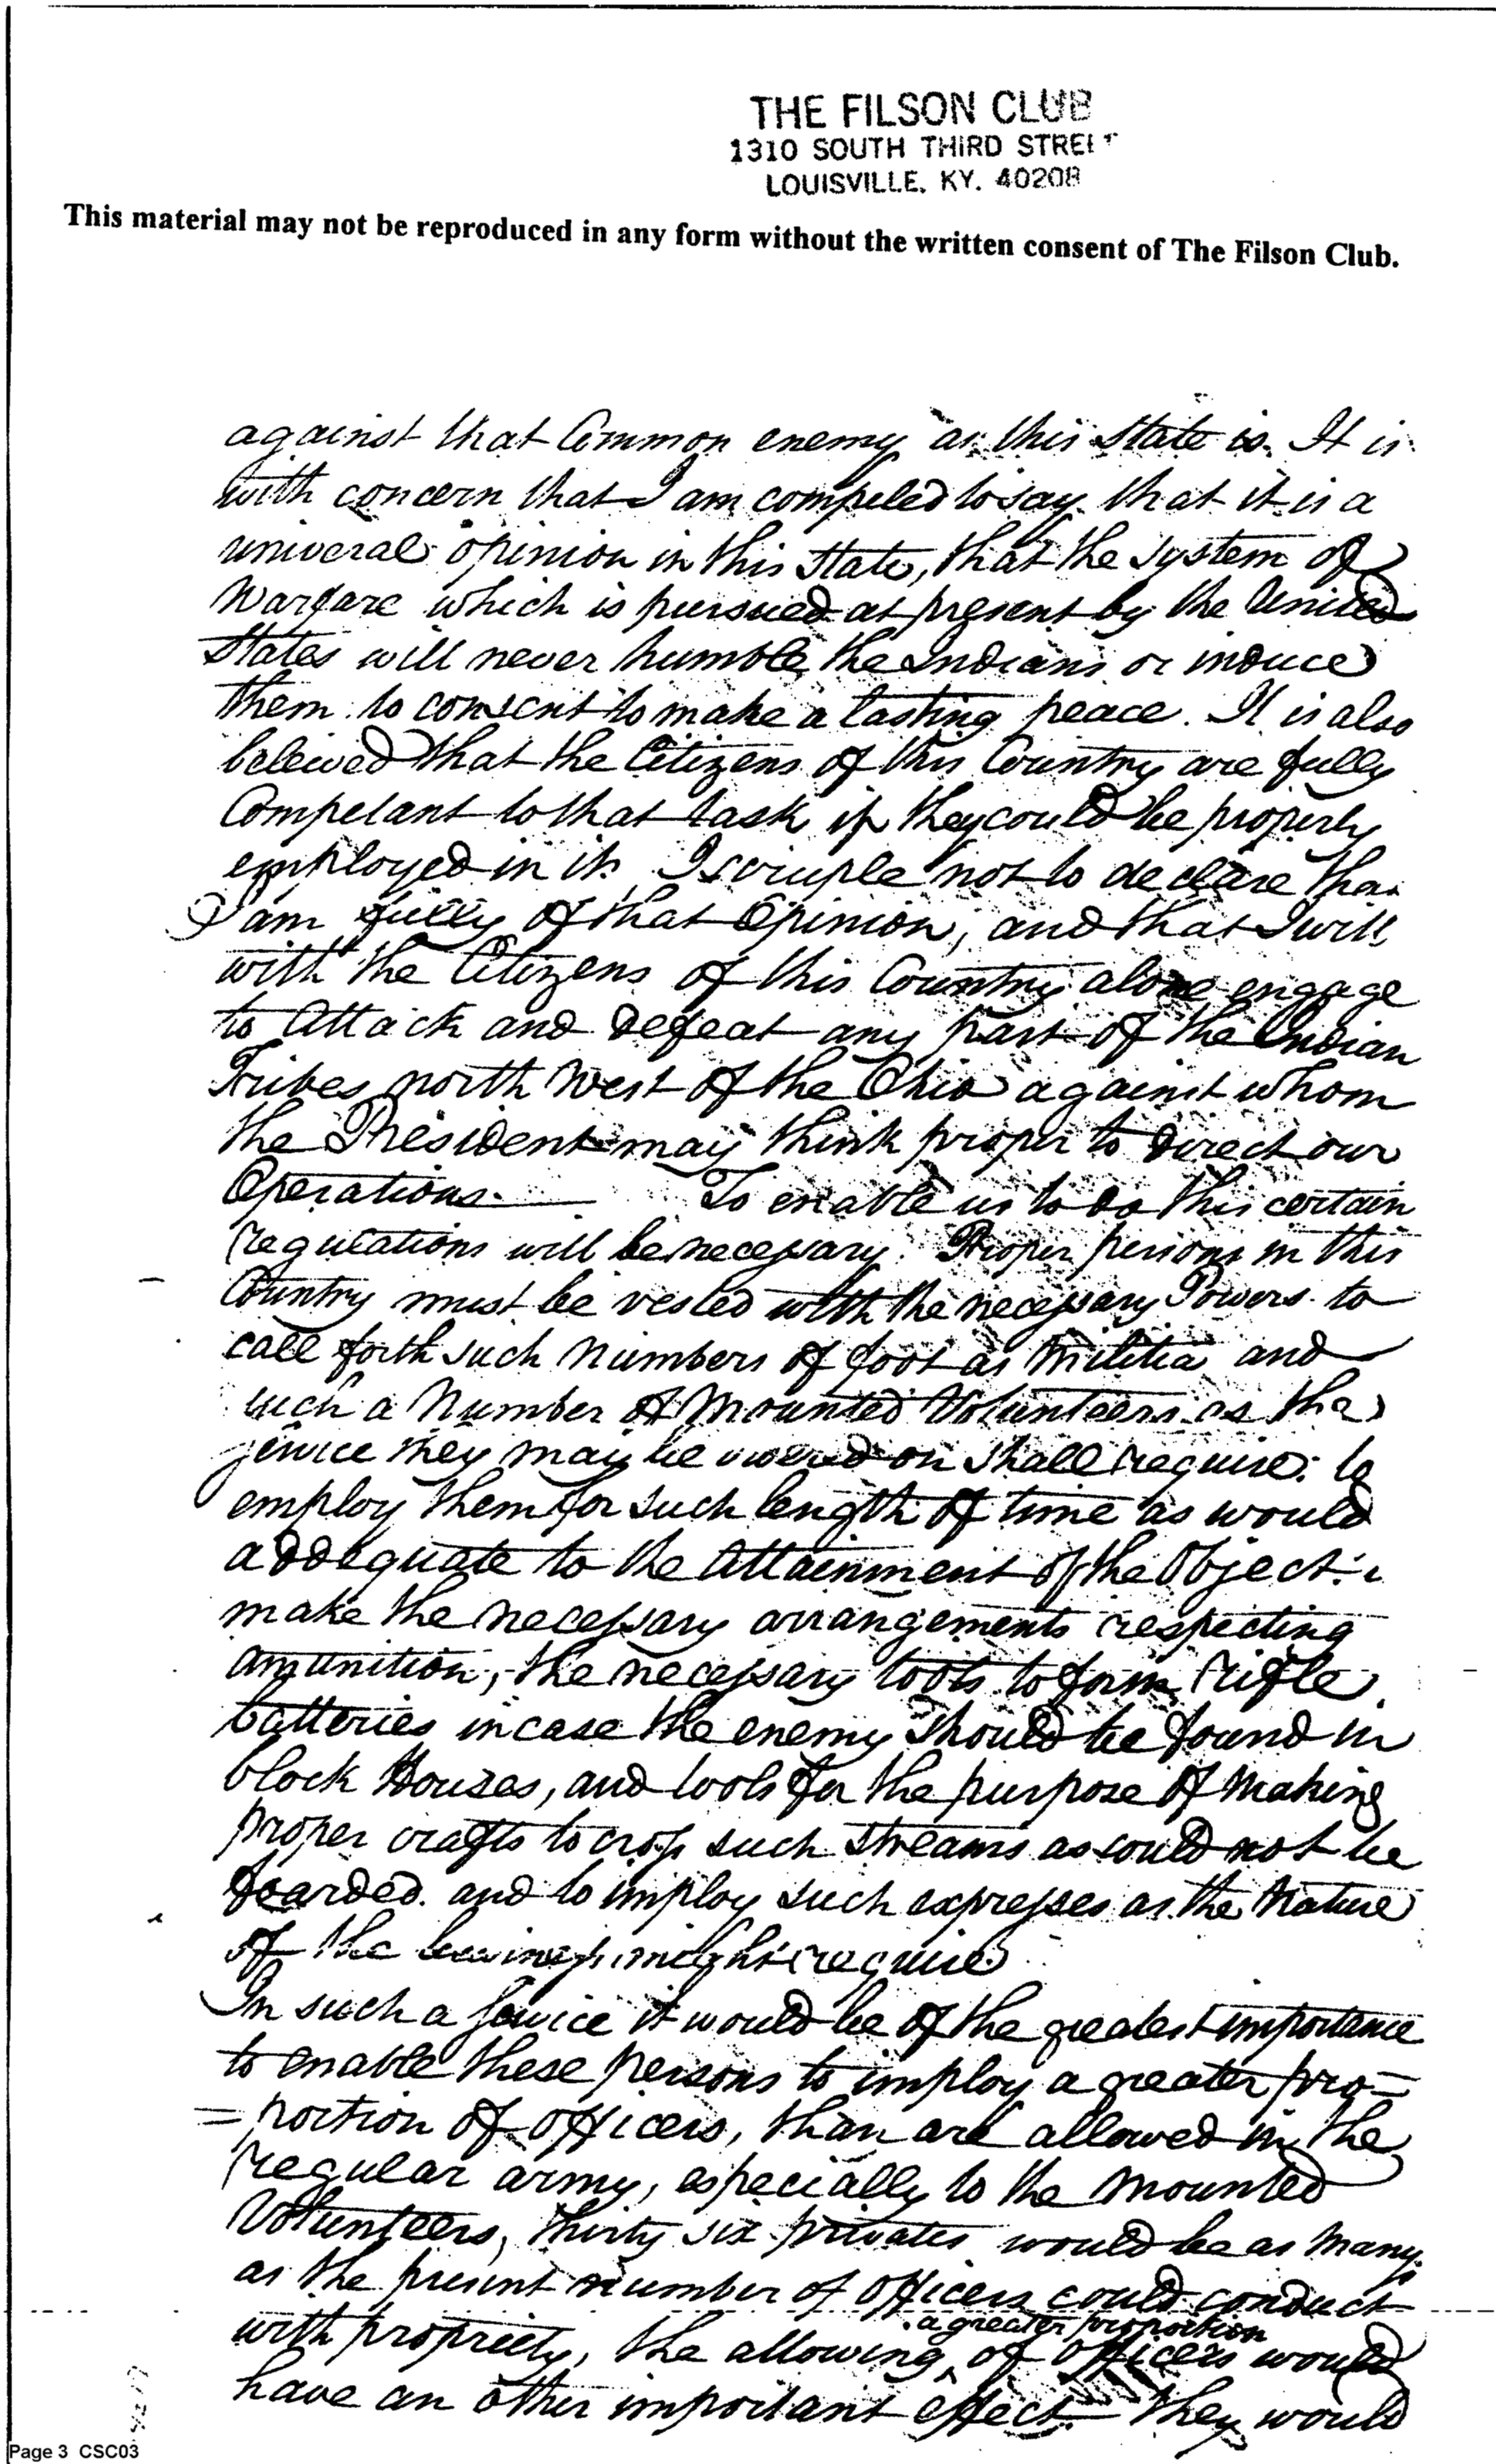 THE FILSON CLUB
1310 SOUTH THIRD STREET
LOUISVILLE, KY. 40208
This material may not be reproduced in any form without the written consent of The Filson Club.
against that Common enemy as this State is. It is
with concern that I am compeled to say that it is a
univeral opinion in this State, that the system of
Warfare which is pursued at present by the United
States will never humble the Indians or induce
them to consent to make a lasting peace. It is also
beleived that the Citizens of this Country are fully
Competant to that task if they could be properly
employed in it. I scruple not to declare that
I am fully of that Opinion, and that I will
with the Citizens of this Country alone engage
to Attack and Defeat any part of the Indian
Tribes north West of the Ohio against whom
the President may think proper to direct our
Operations. To enable us to do this certain
regulations will be necessary. Proper persons in this
Country must be vested with the necessary Powers to
call forth such Numbers of foot as Militia and
such a Number of Mounted Volunteers as the
service they may be on shall require: to
employ them for such length of time as would
addequate to the Attainment of the Object:
make the necessary arrangements respecting
amunition, the necessary tools to form Rifle
batteries in case the enemy should be found in
block Houses, and tools for the purpose of Making
proper crafts to cross such streams as could not be
foarded. and to imploy such expresses as the Nature
of the might require
In such a service it would be of the greatest importance
to enable these persons to imploy a greater pro=
=portion of officers, than are allowed in the
regular army, especially to the Mounted
Volunteers, thirty six privates would be as Many
as the present number of officers could conduct
a greater proportion
with propriety, the allowing of officers would
have an other important effect – they would
Page 3 CSC03